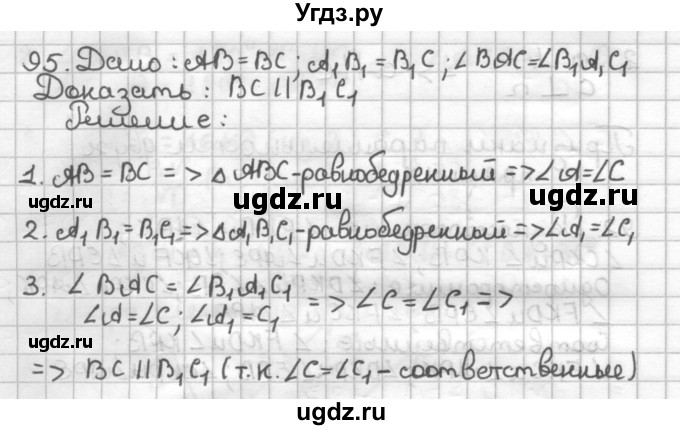 Угдз.ру
95. Дано: AB = BC; A₁B₁ = B₁C; ∠BAC = ∠B₁A₁C₁
Доказать: BC || B₁C₁
Решение:
1. AB = BC => △ABC - равнобедренный => ∠A = ∠C
ugdz.ru ugdz.ru ugdz.ru
2. A₁B₁ = B₁C₁ => △A₁B₁C₁ - равнобедренный => ∠A₁ = ∠C₁
3. ∠BAC = ∠B₁A₁C₁
∠A = ∠C; ∠A₁ = C₁ => ∠C = ∠C₁ =>
ugdz.ru ugdz.ru ugdz.ru
=> BC || B₁C₁ (т.к. ∠C = ∠C₁ - соответственные)
ugdz.ru